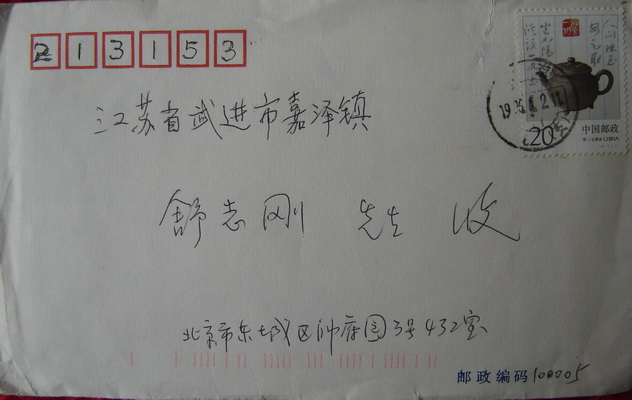 213153
20
中国邮政
CHINA
江苏省武进市嘉泽镇
舒志刚 先生 收
北京市东城区帅府园3号432室
邮政编码100005